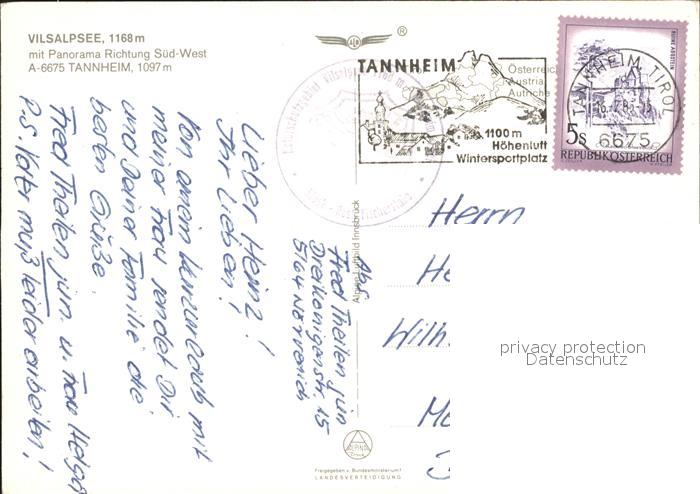 VILSALPSEE, 1168 m
mit Panorama Richtung Süd-West
A-6675 TANNHEIM, 1097 m
®
TANNHEIM
Österreich
Austria
Autriche
1100 m
Höhenluft
Wintersportplatz
TANNHEIM, TIROL
6675
5s
REPUBLIK ÖSTERREICH
Lieber Heinz!
Ihr Lieben!
Von einem Kurzurlaub mit
meiner Frau sendet Dir
und Deiner Familie die
besten Grüße.
Fred Theilen jun. u. Frau Helga
P.S. Vater muß leider arbeiten!
Abs.
Fred Theilen jun
Dreikönigenstr. 15
5164 Nörvenich
Alpine Luftbild Innsbruck
Herrn
He
Wilh.
privacy protection
Datenschutz
ALPINE
Freigegeben v. Bundesministerium f.
LANDESVERTEIDIGUNG